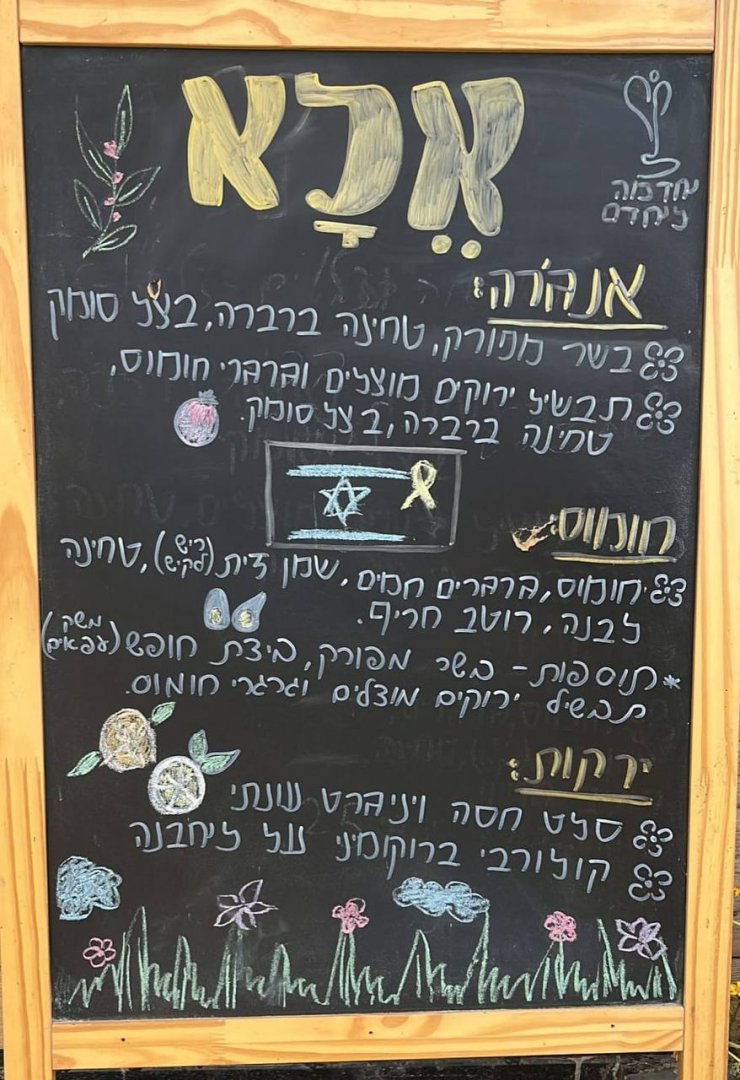 אֵלָא
אנג'רה:
בשר מפורק, טחינה ברברה, בצל סומק
תבשיל ירוקים מוצלים וגרגרי חומוס,
טחינה ברברה, בצל סומק.
חומוס:
חומוס, גרגרים חמים, שמן זית (ריש לקיש), טחינה
לבנה, רוטב חריף.
*תוספות - בשר מפורק, ביצת חופש (משק עפאים)
תבשיל ירוקים מוצלים וגרגרי חומוס.
ירקות:
סלט חסה ויניגרט עונתי
קולורבי ברוקומיני על